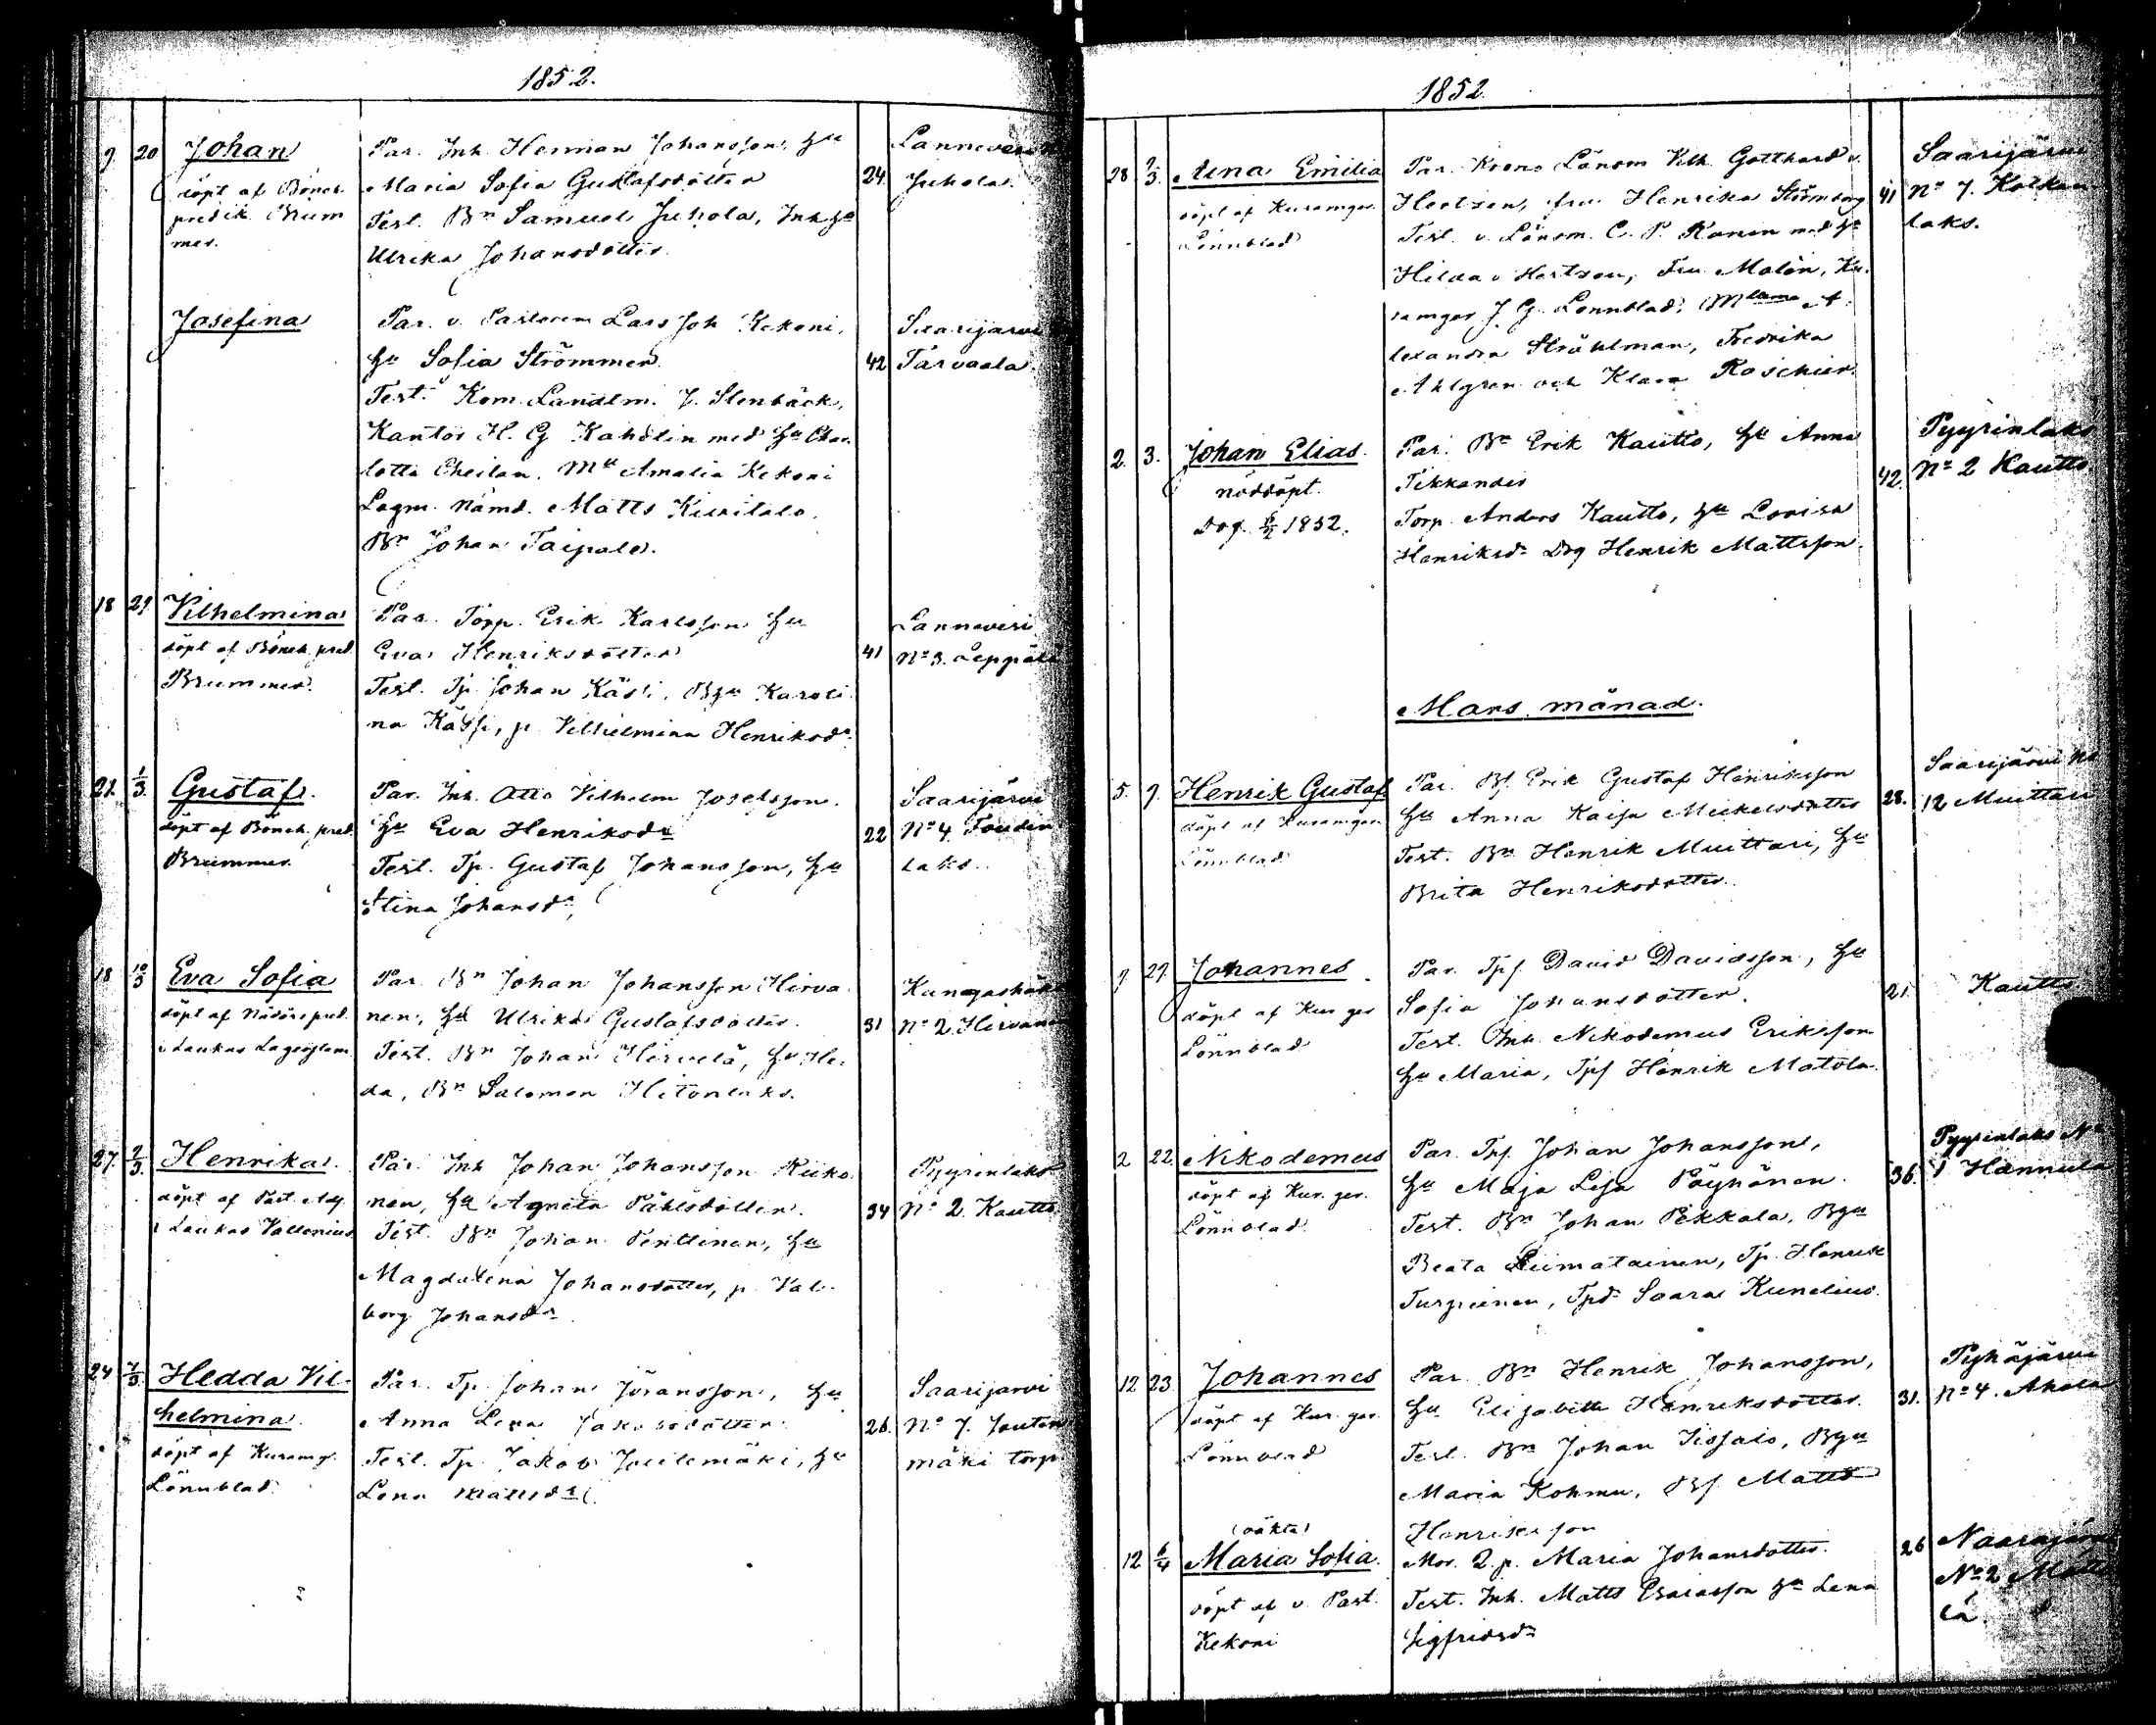 1852.
9. 20 Johan
döpt af Böneh.
predik. Brum
mer.
Par. Inh. Herman Johansson, Hu
Maria Sofia Gustafsdotter
Test. Bn Samuel Juhola, Inh Hu
Ulrika Johansdotter.
24.
Lannevesi
Juhola.
Josefina
Par. v. Pastoren Lars Joh Kekoni,
Hu Sofia Strömmer
Test. Kom. Landtm. J. Stenbäck,
Kantor H. G. Kahelin med Hu Char
lotta Cheilan. Mll Amalia Kekoni
Lagm. Nämd. Matts Kivilalo.
Bn Johan Taipale.
42
Saarijärvi
Tarvaala
18 29. Vilhelmina
döpt af Böneh. pred.
Brummer.
Par. Torp. Erik Karlsson Hu
Eva Henriksdotter
Test. Tp. Johan Käsi, Bhu Karoli
na , p. Vilhelmina Henriksdr
41
Lannevesi
No 3. Leppälä
22. 1/3. Gustaf.
döpt af Böneh. pred.
Brummer.
Par. Inh. Otto Vilhelm Josefsson.
Hu Eva Henriksdr
Test. Tp. Gustaf Johansson, Hu
Stina Johansdr,
22
Saarijärvi
No 4
laks.
18 10/3 Eva Sofia
döpt af Nådårspred.
i Laukas Lagerstam
Par. Bn Johan Johansson Hirva
nen, Hu Ulrika Gustafsdotter.
Test. Bn Johan Hirvelä, Hu He
da, Bn Salomon Hitonlaks.
31
Kangashäkki
No 2 Hirvanen
27. 2/3. Henrika.
döpt af Past. Adj.
i Laukas Vallenius
Par. Inh Johan Johansson Kuko
nen, Hu Agneta Påhlsdotter.
Test. Bn Johan Penttinen, Hu
Magdalena Johansdotter, p. Val
borg Johansdr.
34
Pyyrinlaks
No 2. Kautto
24 7/3. Hedda Vil-
helmina.
döpt af Kuramg.
Lönnblad.
Par. Tp. Johan Jöransson, Hu
Anna Lena Jakobsdotter.
Test. Tp. Jakob Joutemäki, Hu
Lena Mattsdr.
26.
Saarijarvi
No 7. Jouten
mäki torp
1852.
28. 7/3. Alina Emilia
döpt af Kuramger.
Lönnblad
Par. Krono Länsm Vilh. Gotthard v.
Hertzen, fru Henrika Strömborg
Test. v. Länsm. C. P. Ranin med Hu
Hilda v Hertzen, Fru Malén, Ku.
ramger J. G. Lönnblad, Mlame A.
lexandra Ståhlman, Fredrika
Ahlgren och Klara Roschier.
41
Saarijärvi
No 7. Kolkan
laks.
2. 3. Johan Elias.
nöddöpt.
Dog. 6/2 1852.
Par. Bn Erik Kautto, Hu Anna
Tikkander
Torp. Anders Kautto, Hu Lovisa
Henriksdr Drg Henrik Mattsson.
42.
Pyyrinlaks
No 2 Kautto.
Mars månad.
5. 7. Henrik Gustaf
döpt af Kuramger.
Lönnblad
Par. Bf. Erik Gustaf Henriksson
Hu Anna Kaisa Mickelsdotter
Test. Bn Henrik Muittari, Hu
Brita Henriksdotter.
28.
Saarijärvi No
12 Muittari
7. 27. Johannes.
döpt af Kur ger
Lönnblad
Par. Tpf. David Davidsson, Hu
Sofia Johansdotter.
Test. Inh. Nikodemus Eriksson
Hu Maria, Tpf Henrik Matola.
21.
Kautto.
2 22. Nikodemus
döpt af Kur. ger.
Lönnblad.
Par. Tpf. Johan Johansson,
Hu Maja Lisa Pöyhönen.
Test. Bn Johan Pekkala, Bhu
Beata Liimatainen, Tp. Henrik
Turpeinen, Tpd. Saara Kunelius.
36.
Pyyrinlaks No
1 Hannula
12 23. Johannes
döpt af Kur. ger.
Lönnblad
Par. Bn Henrik Johansson,
Hu Elisabeth Henriksdotter.
Test. Bn Johan Iissalo, Bhu
Maria Kohmu, Bf. Matts
Henriksson
31.
Pyhäjärvi
No 4. Ahola
12 6/4 (oäkta)
Maria Sofia.
döpt af v. Past.
Kekoni
Mor. Q. p. Maria Johansdotter.
Test. Inh. Matts Esaiasson Hu Lena
Sigfridsdr
26
Naarajärvi
No 2 Mattt
lä.